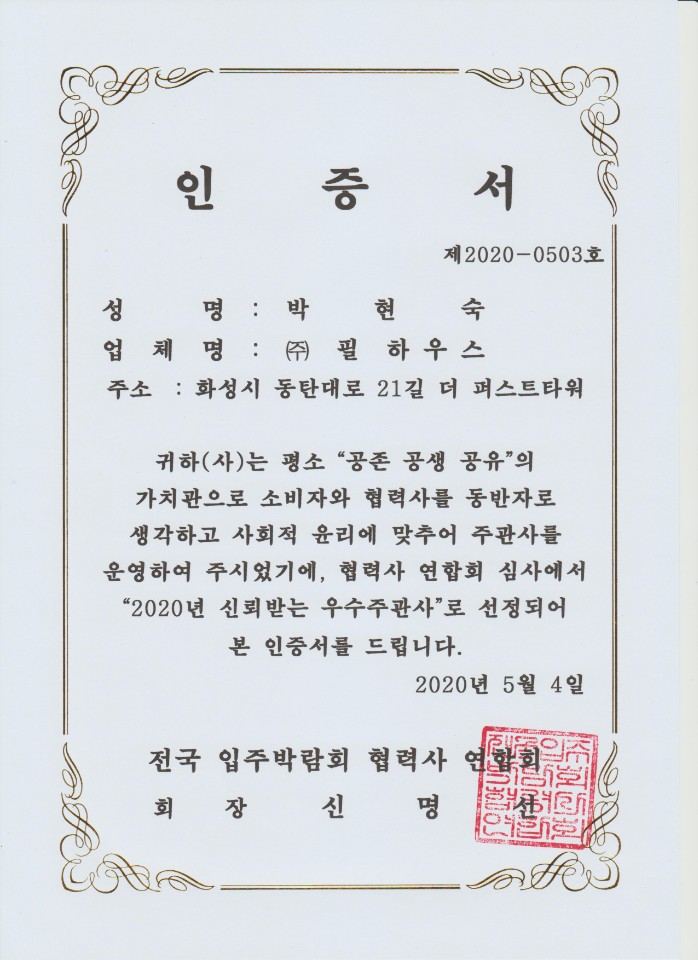 인 증 서
제2020-0503호
성 명 : 박 현 숙
업 체 명 : ㈜ 필 하우스
주소 : 화성시 동탄대로 21길 더 퍼스트타워
귀하(사)는 평소 “공존 공생 공유”의
가치관으로 소비자와 협력사를 동반자로
생각하고 사회적 윤리에 맞추어 주관사를
운영하여 주시었기에, 협력사 연합회 심사에서
“2020년 신뢰받는 우수주관사”로 선정되어
본 인증서를 드립니다.
2020년 5월 4일
전국 입주박람회 협력사 연합회
회 장 신 명 선